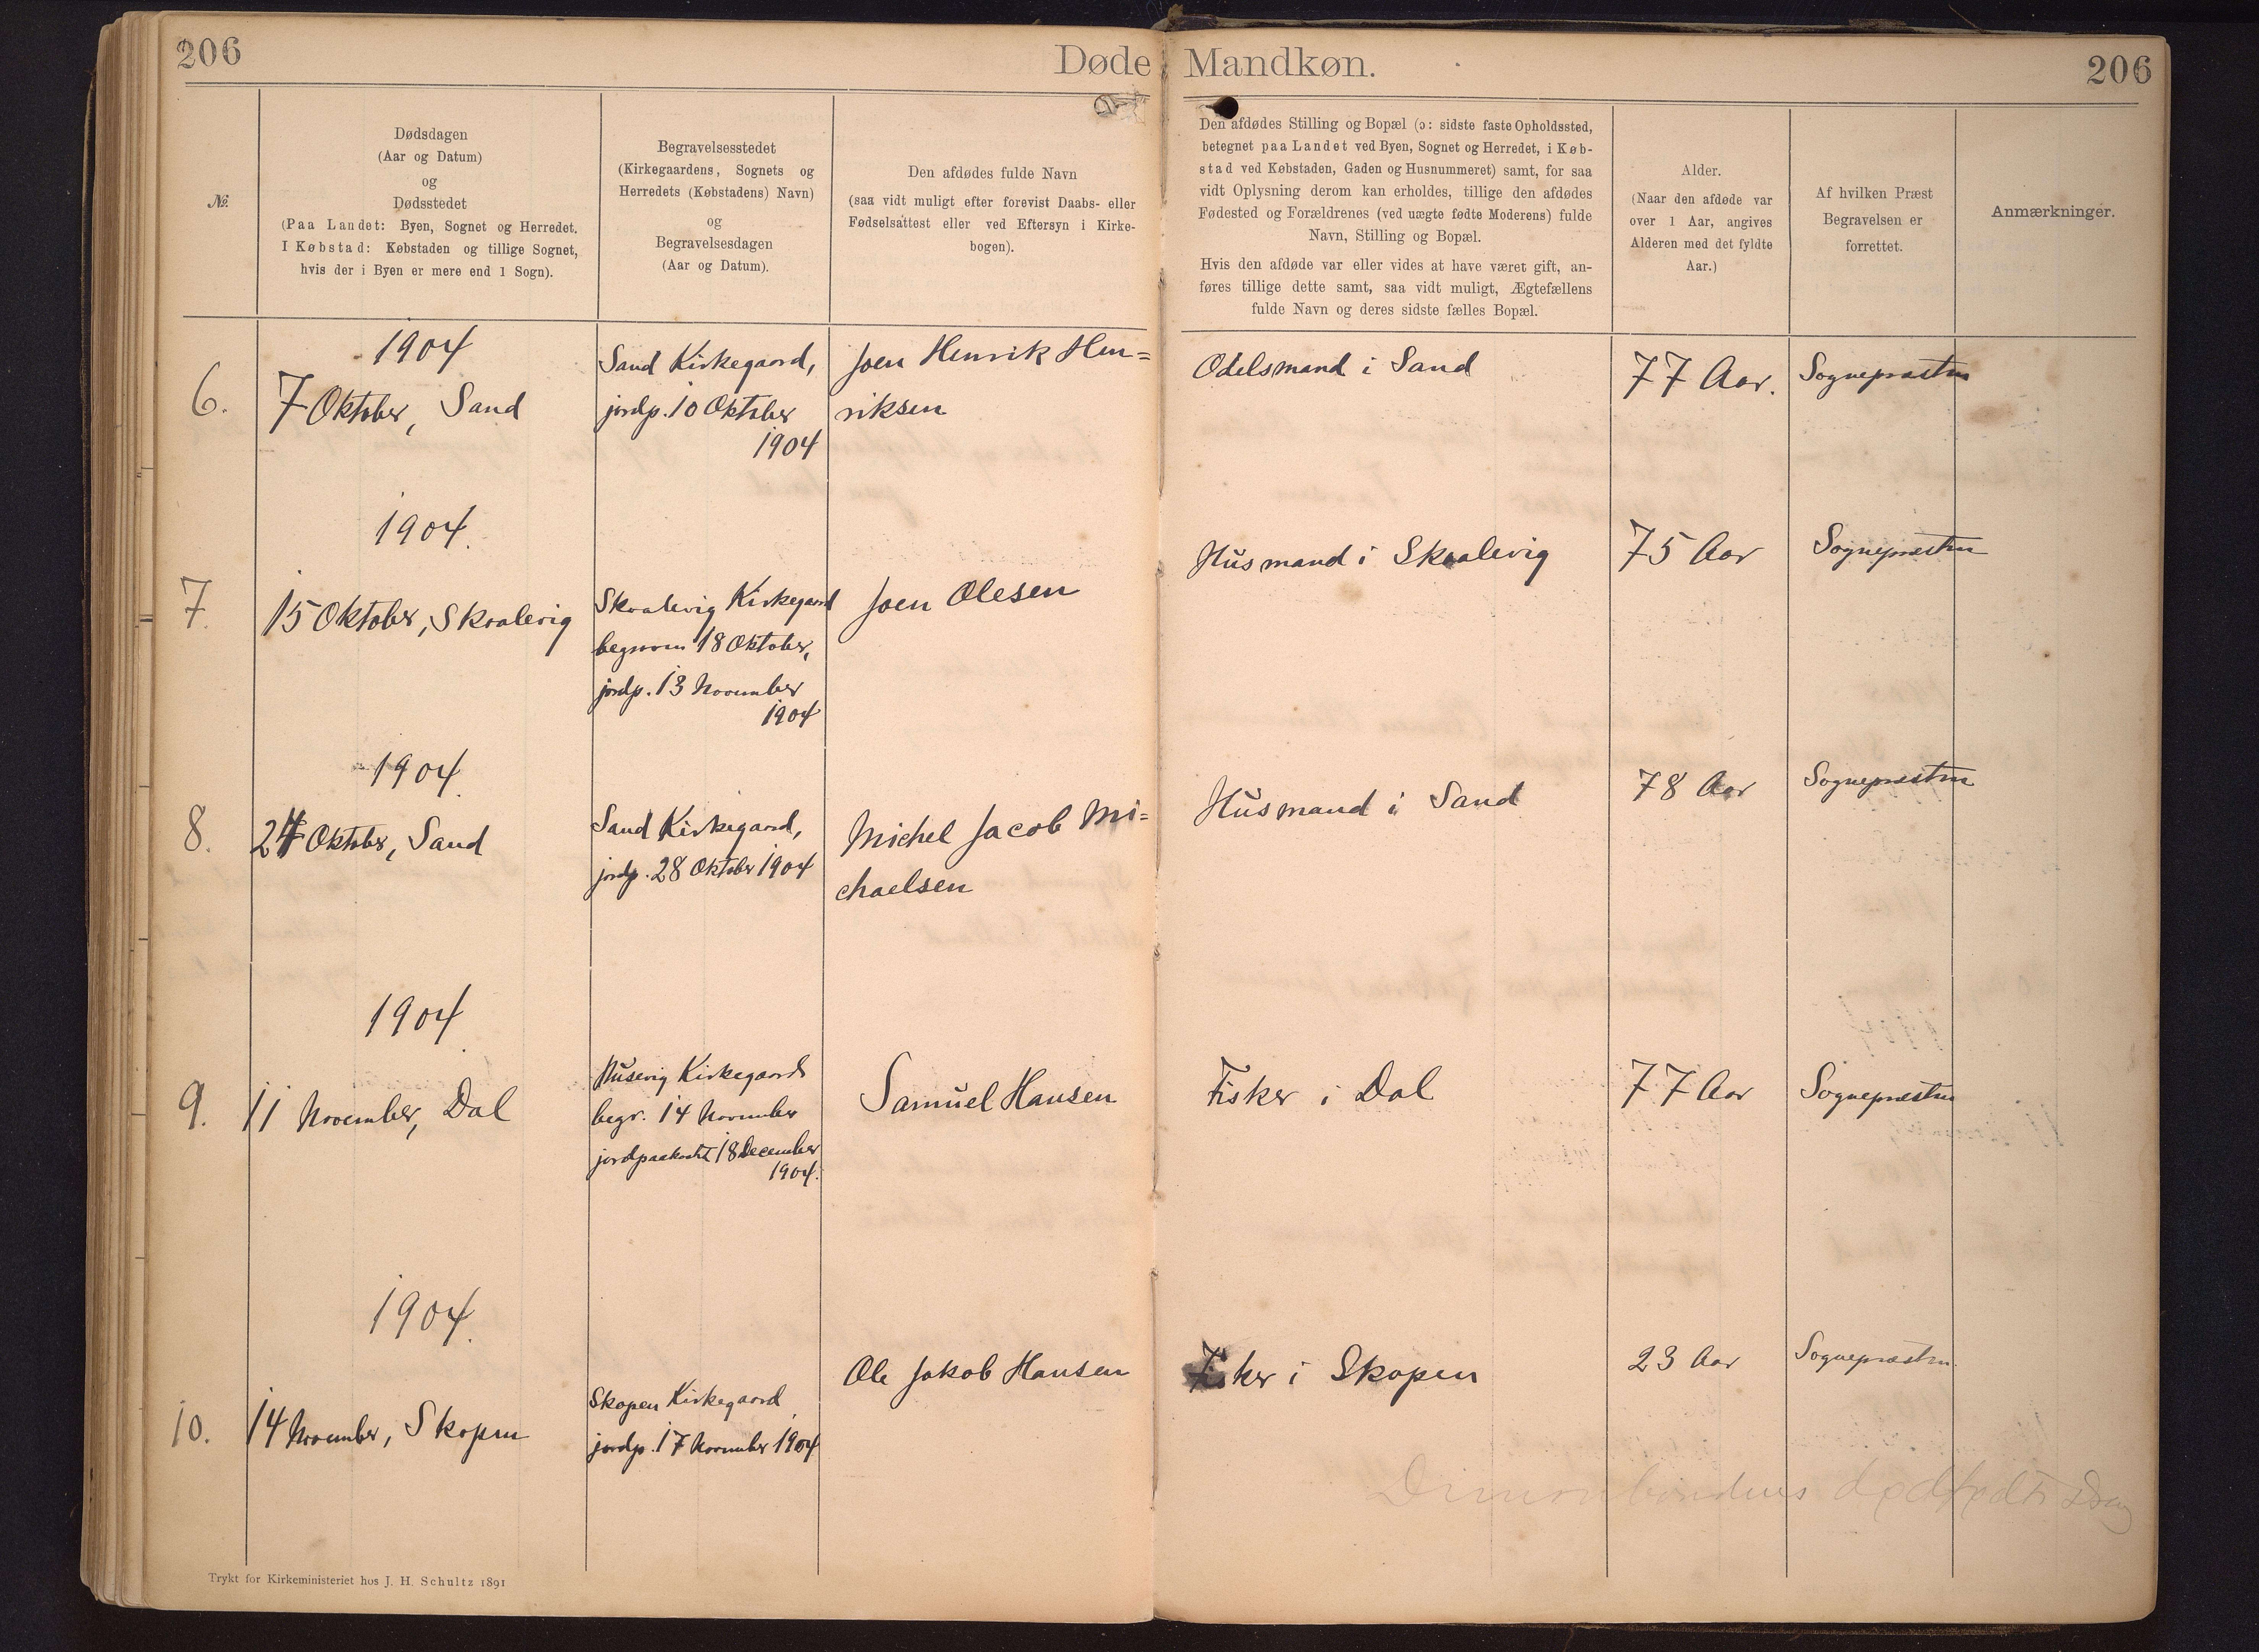 206
Døde
Mandkøn.
206
№
Dødsdagen
(Aar og Datum)
og
Dødsstedet
(Paa Landet: Byen, Sognet og Herredet.
I Købstad: Købstaden og tillige Sognet,
hvis der i Byen er mere end 1 Sogn).
Begravelsesstedet
(Kirkegaardens, Sognets og
Herredets (Købstadens) Navn)
og
Begravelsesdagen
(Aar og Datum).
Den afdødes fulde Navn
(saa vidt muligt efter forevist Daabs- eller
Fødselsattest eller ved Eftersyn i Kirke-
bogen).
Den afdødes Stilling og Bopæl (ɔ: sidste faste Opholdssted,
betegnet paa Landet ved Byen, Sognet og Herredet, i Køb-
stad ved Købstaden, Gaden og Husnummeret) samt, for saa
vidt Oplysning derom kan erholdes, tillige den afdødes
Fødested og Forældrenes (ved uægte fødte Moderens) fulde
Navn, Stilling og Bopæl.
Hvis den afdøde var eller vides at have været gift, an-
føres tillige dette samt, saa vidt muligt, Ægtefællens
fulde Navn og deres sidste fælles Bopæl.
Alder.
(Naar den afdøde var
over 1 Aar, angives
Alderen med det fyldte
Aar.)
Af hvilken Præst
Begravelsen er
forrettet.
Anmærkninger.
6.
1904
7 Oktober, Sand
Sand Kirkegaard,
jordp. 10 Oktober
1904
Joen Henrik Hen=
riksen
Odelsmand i Sand
77 Aar.
Sognepræsten
7.
1904.
15 Oktober, Skaalevig
Skaalevig Kirkegaard
begraven 18 Oktober,
jordp. 13 November
1904
Joen Olesen
Husmand i Skaalevig
75 Aar
Sognepræsten
8.
1904.
24 Oktober, Sand
Sand Kirkegaard,
jordp. 28 Oktober 1904
Michel Jacob Mi=
chaelsen
Husmand i Sand
78 Aar
Sognepræsten
9.
1904.
11 November, Dal
Husevig Kirkegaard
begr. 14 November
jordpaakastet 18 December
1904.
Samuel Hansen
Fisker i Dal
77 Aar
Sognepræsten
10.
1904.
14 November, Skopen
Skopen Kirkegaard,
jordp. 17 November 1904
Ole Jakob Hansen
Fisker i Skopen
23 Aar
Sognepræsten.
dødfødte
Trykt for Kirkeministeriet hos J. H. Schultz 1891